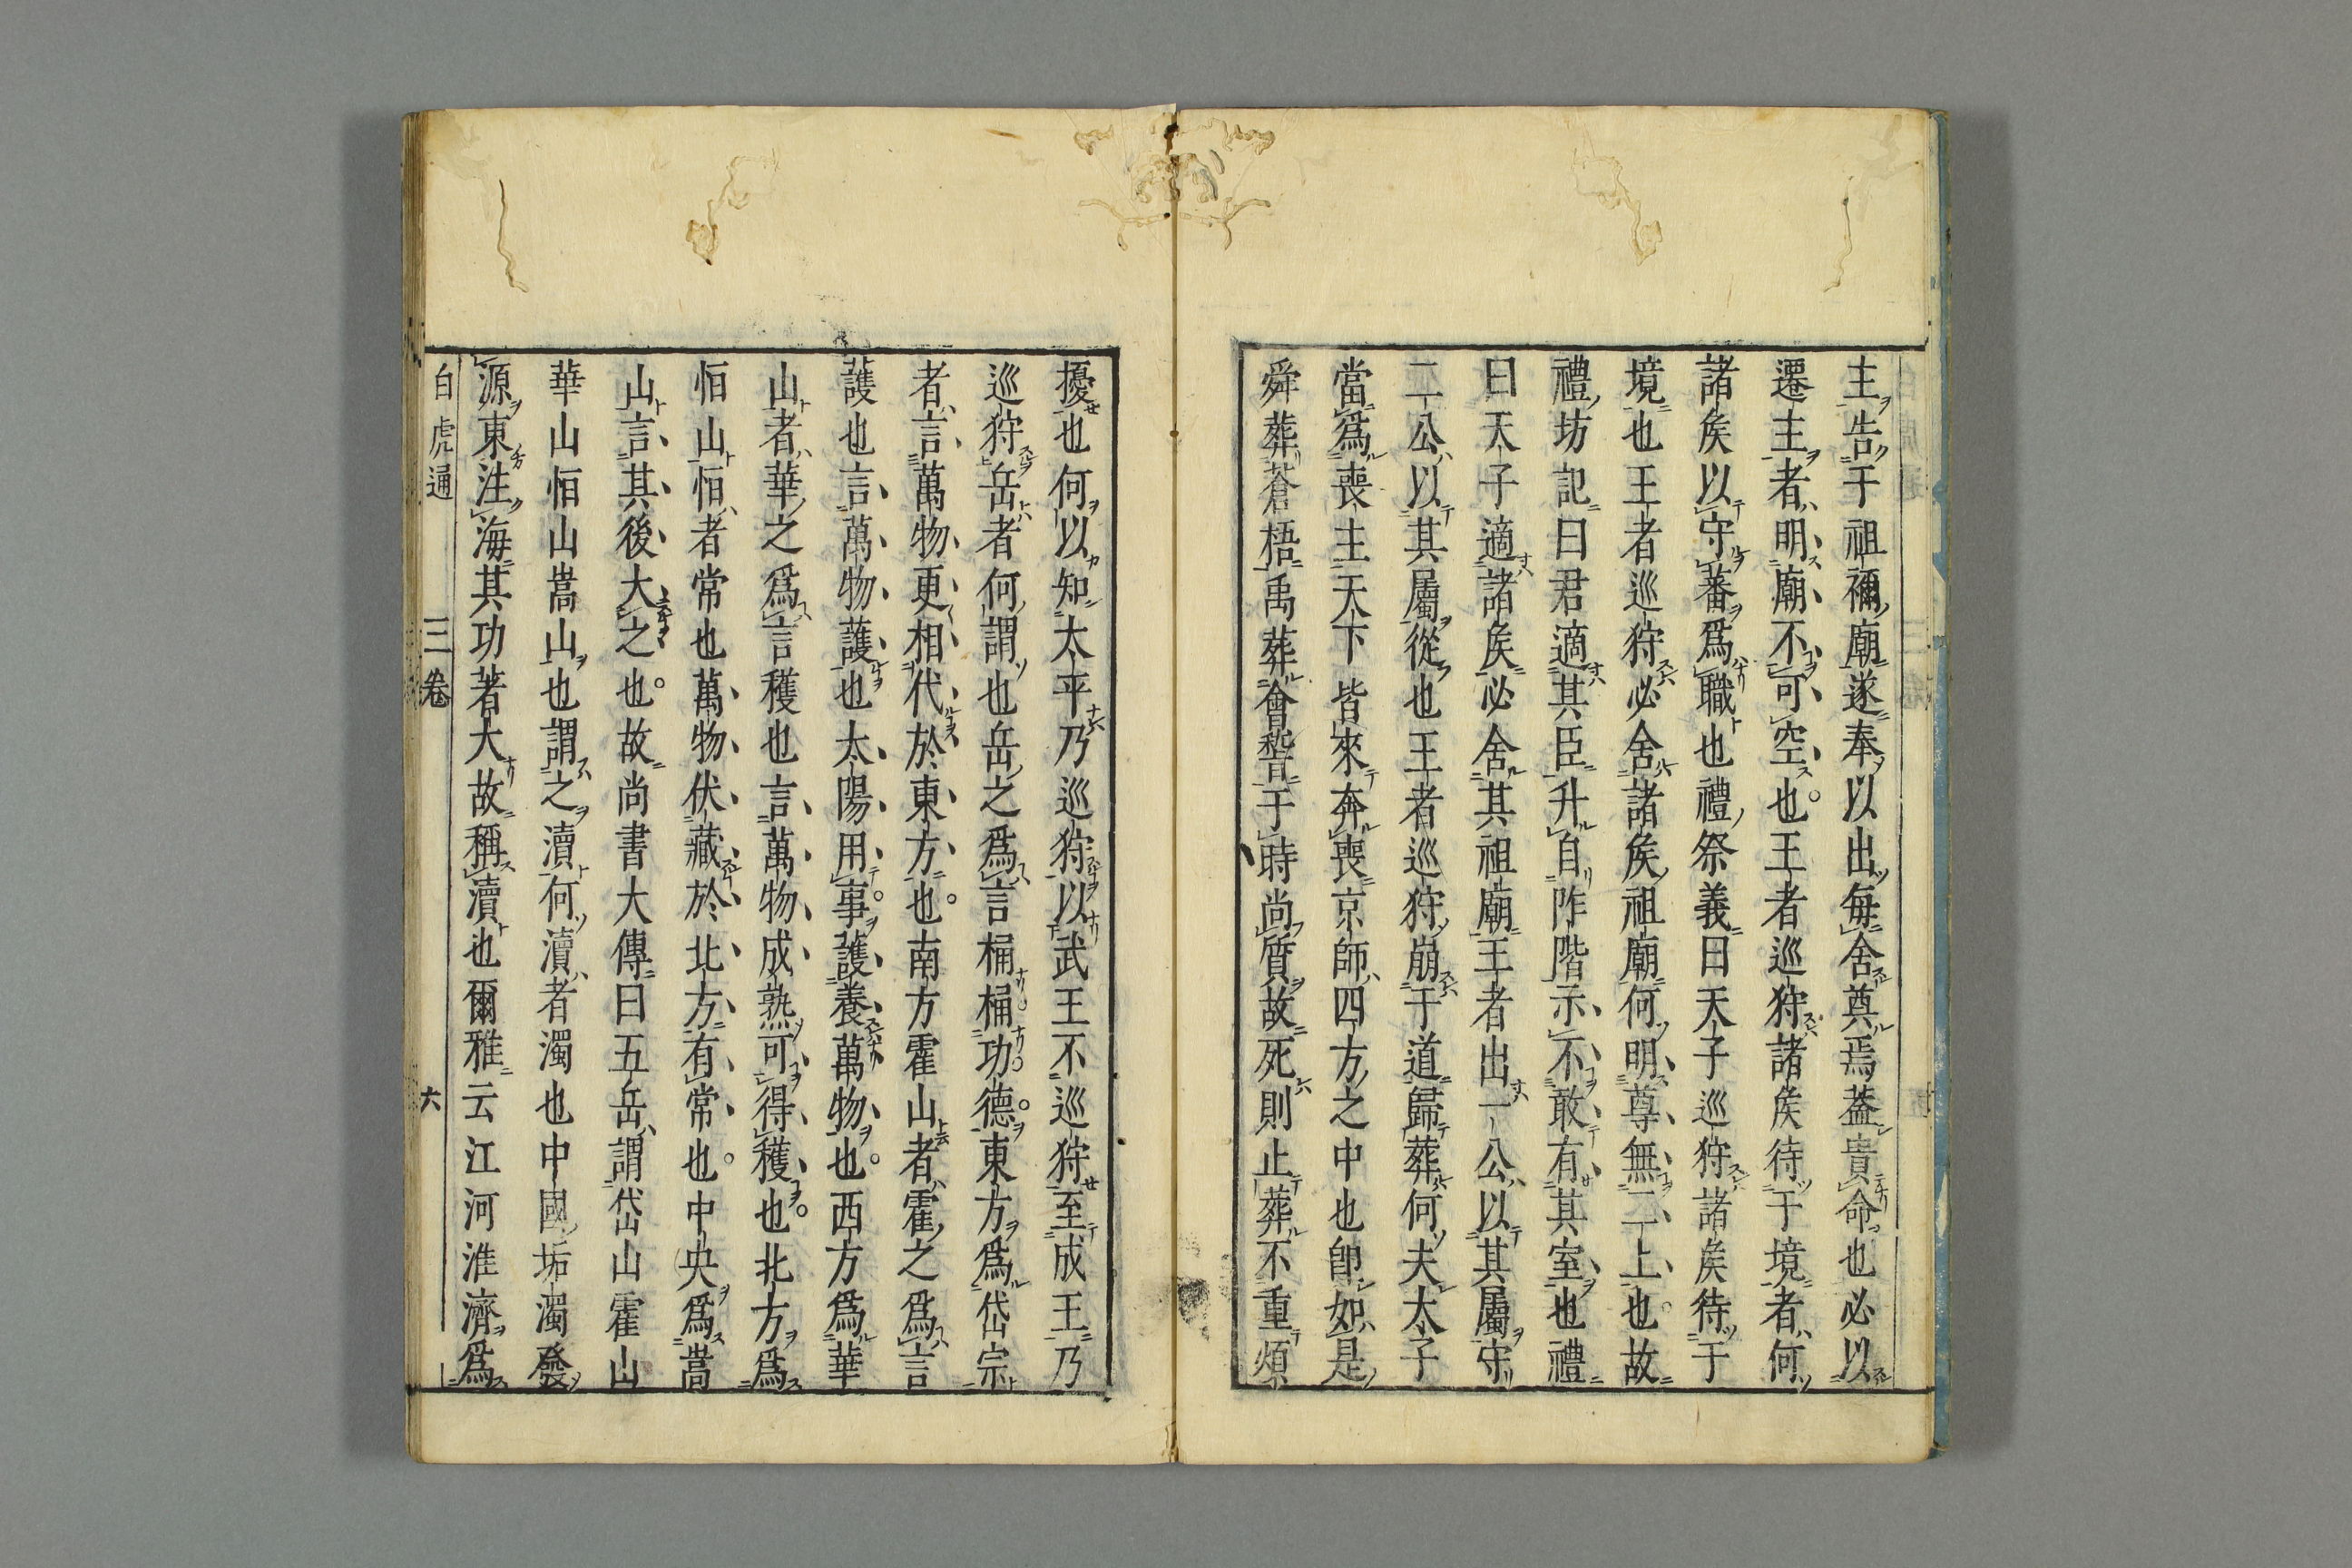 主告于祖禰廟遂奉以出每舍奠焉葢貴命也必以
遷主者明廟不可空也王者巡狩諸矦待于境者何
諸矦以守蕃爲職也禮祭義曰天子巡狩諸矦待于
境也王者巡狩必舍諸矦祖廟何明尊無二上也故
禮坊記曰君適其臣升自阼階示不敢有其室也禮
曰天子適諸矦必舍其祖廟王者出一公以其屬守
二公以其屬從也王者巡狩崩于道歸葬何夫太子
當爲喪主天下皆來奔喪京師四方之中也卽如是
舜葬蒼梧禹葬會稽于時尚質故死則止葬不重煩
擾也何以知太平乃巡狩以武王不巡狩至成王乃
巡狩岳者何謂也岳之爲言桷桷功德東方爲岱宗
者言萬物更相代於東方也南方霍山者霍之爲言
護也言萬物護也太陽用事護養萬物也西方爲華
山者華之爲言穫也言萬物成熟可得穫也北方爲
恒山恒者常也萬物伏藏於北方有常也中央爲嵩
山言其後大之也故尚書大傳曰五岳謂岱山霍山
華山恒山嵩山也謂之瀆何瀆者濁也中國垢濁發
源東注海其功著大故稱瀆也爾雅云江河淮濟爲
白虎通 三卷 六